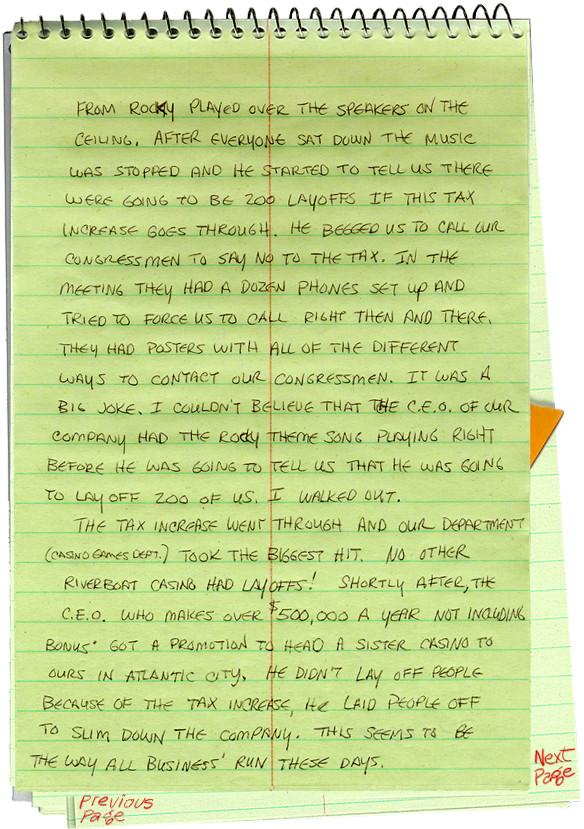 FROM ROCKY PLAYED OVER THE SPEAKERS ON THE
CEILING. AFTER EVERYONE SAT DOWN THE MUSIC
WAS STOPPED AND HE STARTED TO TELL US THERE
WERE GOING TO BE 200 LAYOFFS IF THIS TAX
INCREASE GOES THROUGH. HE BEGGED US TO CALL OUR
CONGRESSMEN TO SAY NO TO THE TAX. IN THE
MEETING THEY HAD A DOZEN PHONES SET UP AND
TRIED TO FORCE US TO CALL RIGHT THEN AND THERE.
THEY HAD POSTERS WITH ALL OF THE DIFFERENT
WAYS TO CONTACT OUR CONGRESSMEN. IT WAS A
BIG JOKE. I COULDN'T BELIEVE THAT THE C.E.O. OF OUR
COMPANY HAD THE ROCKY THEME SONG PLAYING RIGHT
BEFORE HE WAS GOING TO TELL US THAT HE WAS GOING
TO LAY OFF 200 OF US. I WALKED OUT.
THE TAX INCREASE WENT THROUGH AND OUR DEPARTMENT
(CASINO GAMES DEPT.) TOOK THE BIGGEST HIT. NO OTHER
RIVERBOAT CASINO HAD LAYOFFS! SHORTLY AFTER, THE
C.E.O. WHO MAKES OVER $500,000 A YEAR NOT INCLUDING
BONUS' GOT A PROMOTION TO HEAD A SISTER CASINO TO
OURS IN ATLANTIC CITY. HE DIDN'T LAY OFF PEOPLE
BECAUSE OF THE TAX INCREASE, HE LAID PEOPLE OFF
TO SLIM DOWN THE COMPANY. THIS SEEMS TO BE
THE WAY ALL BUSINESS' RUN THESE DAYS.
Next
Page
Previous
Page